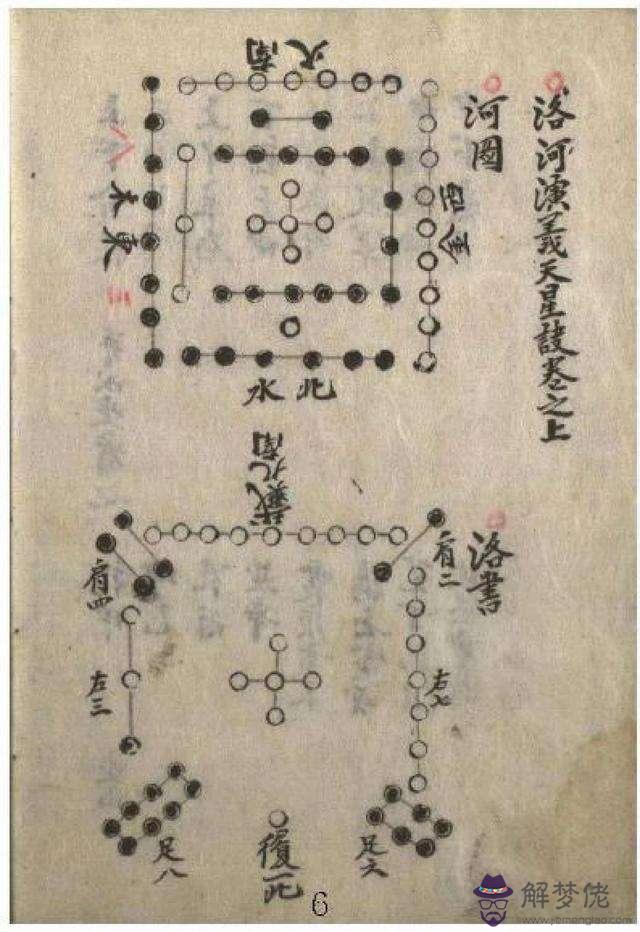 洛河演義天星訣卷之上
河圖
南火
西金
東木
北水
洛書
戴九南
肩二
肩四
右七
左三
足六
足八
履一北
6
解梦佬
www.jiemenglao.com